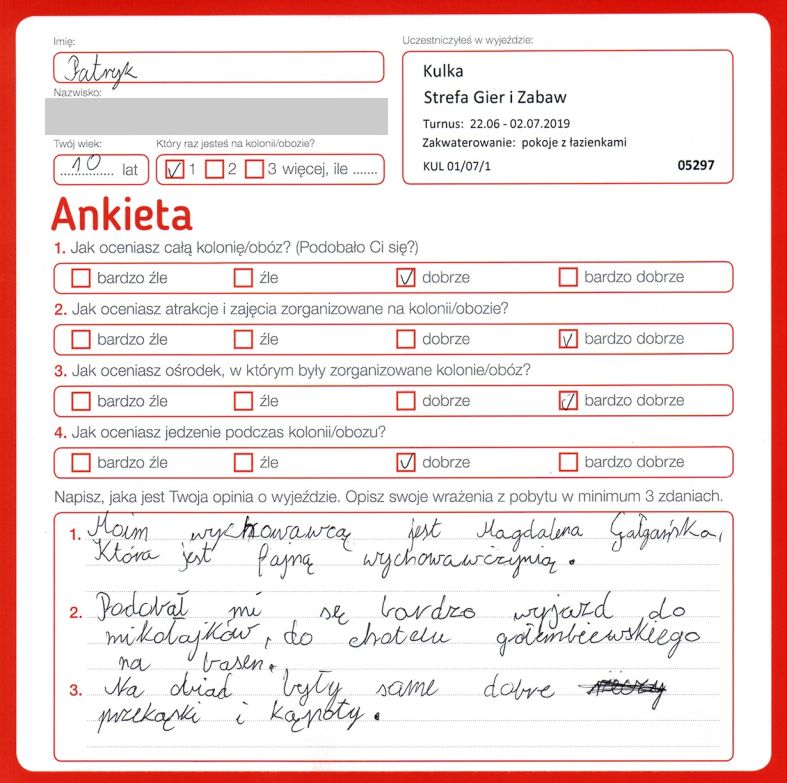 Imię:
Patryk
Nazwisko:
Twój wiek:
10 lat
Który raz jesteś na kolonii/obozie?
1 2 3 więcej, ile .......
Uczestniczyłeś w wyjeździe:
Kulka
Strefa Gier i Zabaw
Turnus: 22.06 - 02.07.2019
Zakwaterowanie: pokoje z łazienkami
KUL 01/07/1 05297
Ankieta
1. Jak oceniasz całą kolonię/obóz? (Podobało Ci się?)
bardzo źle źle dobrze bardzo dobrze
2. Jak oceniasz atrakcje i zajęcia zorganizowane na kolonii/obozie?
bardzo źle źle dobrze bardzo dobrze
3. Jak oceniasz ośrodek, w którym były zorganizowane kolonie/obóz?
bardzo źle źle dobrze bardzo dobrze
4. Jak oceniasz jedzenie podczas kolonii/obozu?
bardzo źle źle dobrze bardzo dobrze
Napisz, jaka jest Twoja opinia o wyjeździe. Opisz swoje wrażenia z pobytu w minimum 3 zdaniach.
1. Moim wychowawcą jest Magdalena Gałgańska,
Która jest fajną wychowawczynią.
2. Podobał mi sę bardzo wyjazd do
mikołajków, do chotelu gołembiewskiego
na basen.
3. Na obiad były same dobre
przekąski i kąpoty.